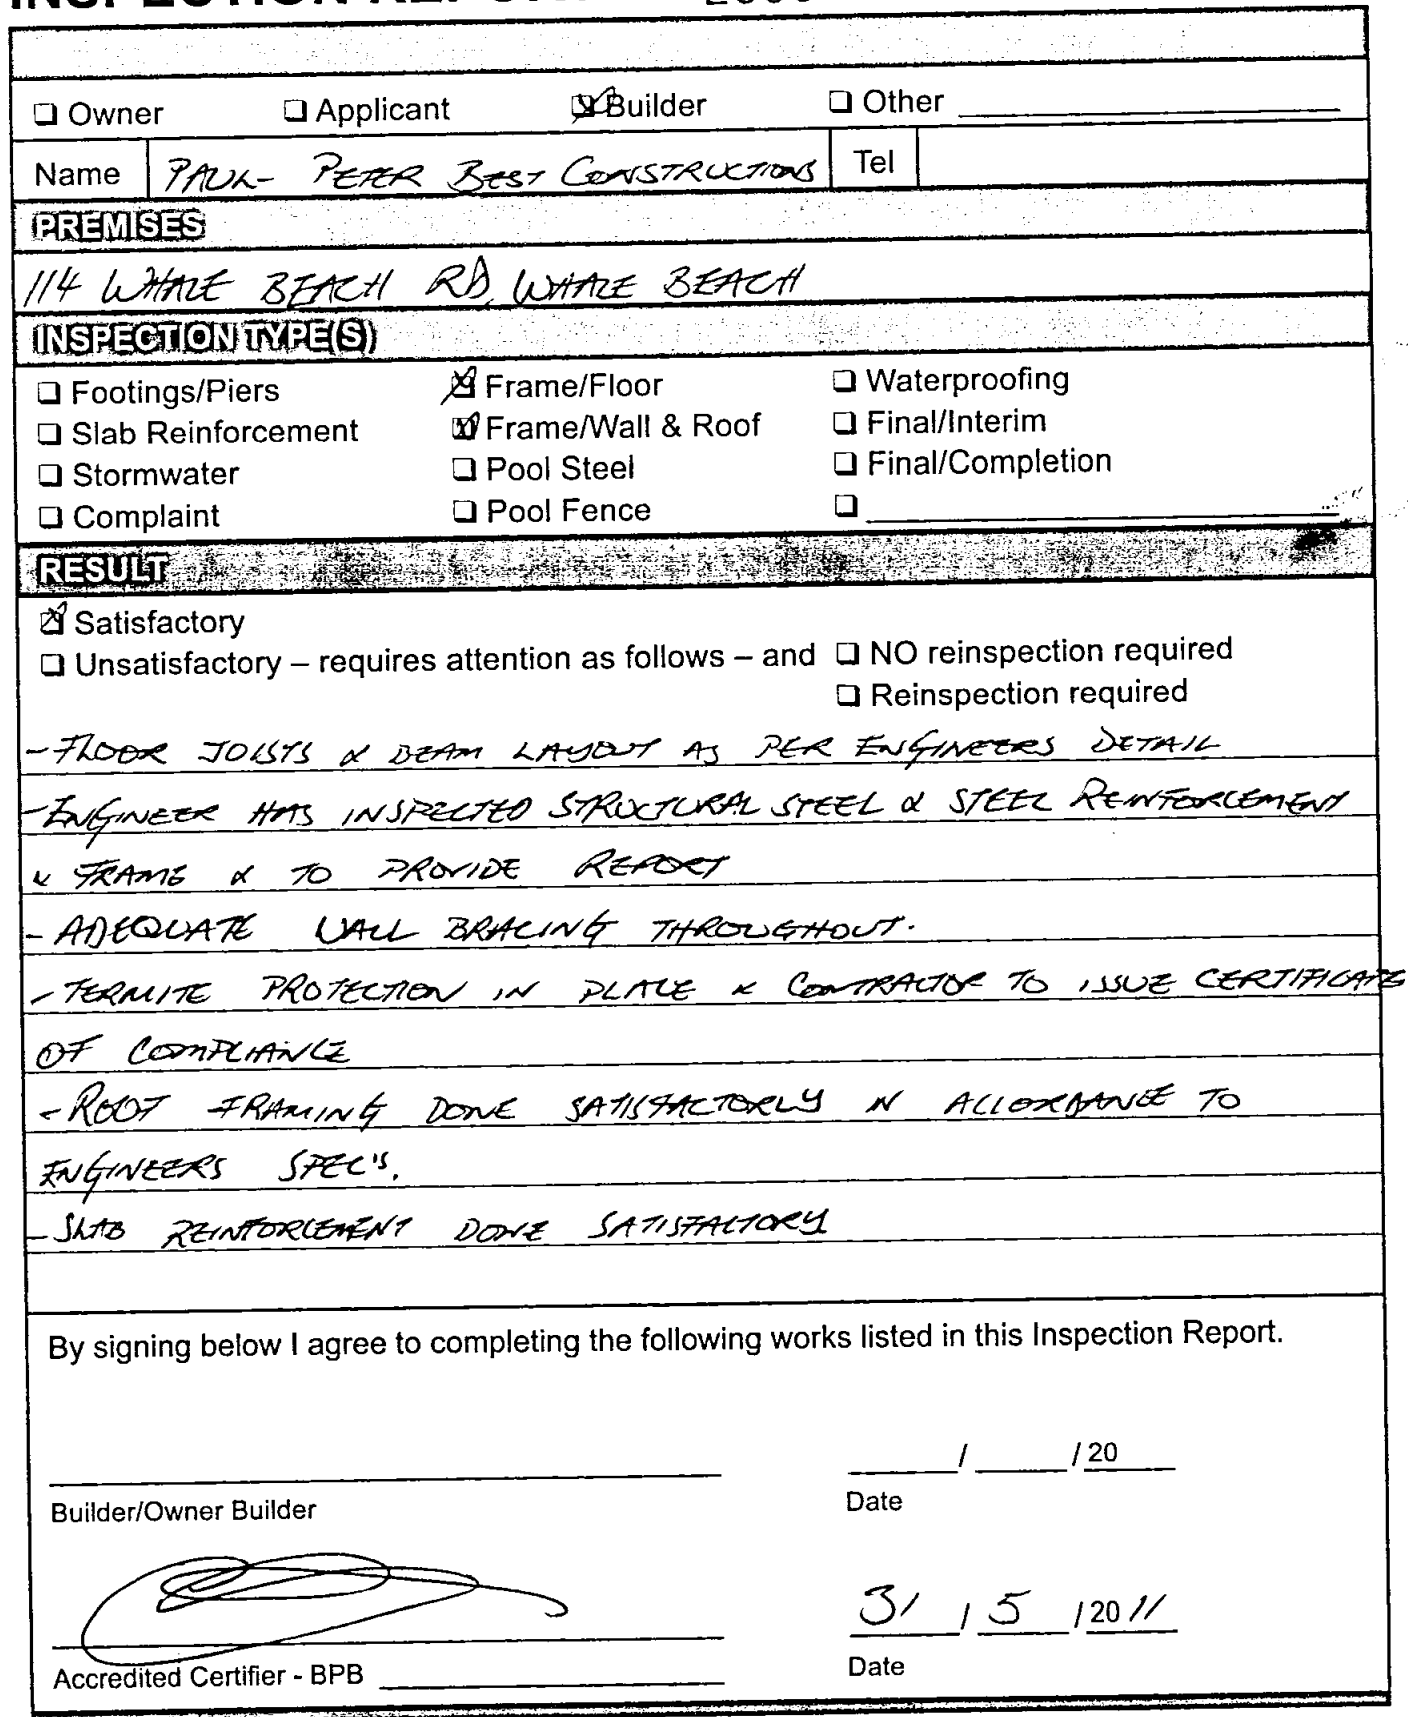 INSPECTION REPORT
☐ Owner ☐ Applicant ☒ Builder ☐ Other
Name PAUL- PETER BEST CONSTRUCTIONS Tel
PREMISES
114 WHALE BEACH RD, WHALE BEACH
INSPECTION TYPE(S)
☐ Footings/Piers ☒ Frame/Floor ☐ Waterproofing
☐ Slab Reinforcement ☒ Frame/Wall & Roof ☐ Final/Interim
☐ Stormwater ☐ Pool Steel ☐ Final/Completion
☐ Complaint ☐ Pool Fence ☐
RESULT
☒ Satisfactory
☐ Unsatisfactory – requires attention as follows – and ☐ NO reinspection required
☐ Reinspection required
- FLOOR JOISTS & BEAM LAYOUT AS PER ENGINEERS DETAIL
- ENGINEER HAS INSPECTED STRUCTURAL STEEL & STEEL REINFORCEMENT
& FRAME & TO PROVIDE REPORT
- ADEQUATE WALL BRACING THROUGHOUT.
- TERMITE PROTECTION IN PLACE & CONTRACTOR TO ISSUE CERTIFICATE
OF COMPLIANCE
- ROOF FRAMING DONE SATISFACTORLY IN ACCORDANCE TO
ENGINEERS SPEC'S.
- SLAB REINFORCEMENT DONE SATISFACTORY
By signing below I agree to completing the following works listed in this Inspection Report.
/ / 20
Builder/Owner Builder Date
31 / 5 / 20 11
Accredited Certifier - BPB Date